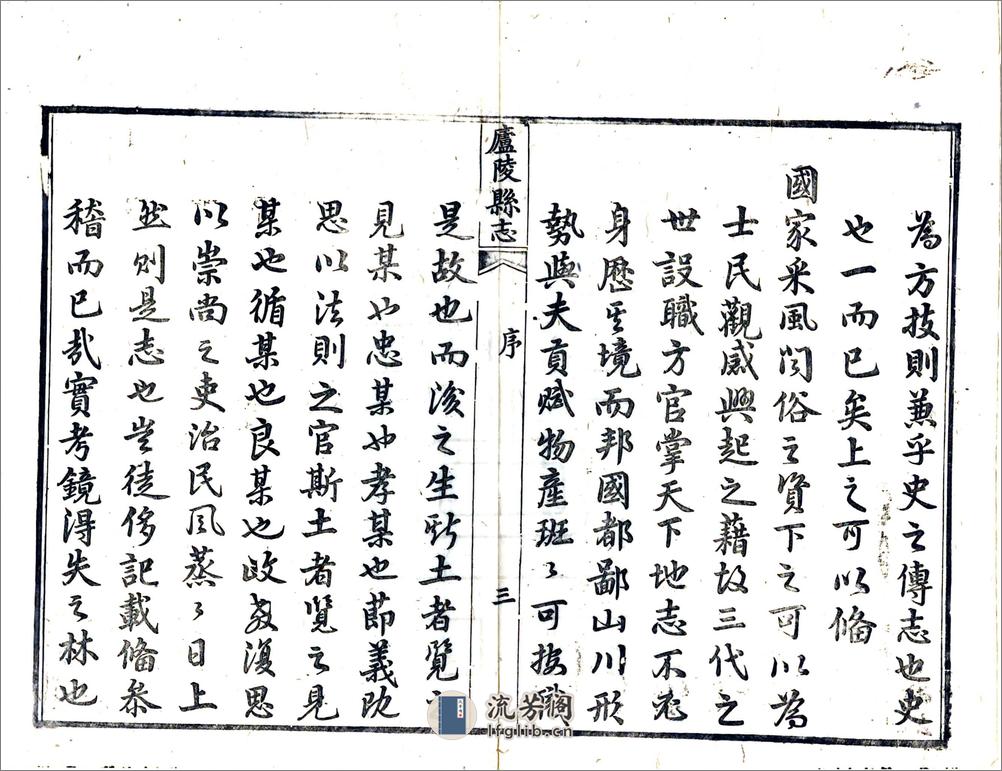 為方技則兼乎史之傳志也史
也一而已矣上之可以備
國家采風問俗之資下之可以為
士民觀感興起之藉故三代之
世設職方官掌天下地志不必
身歷其境而邦國都鄙山川形
勢與夫貢賦物產班〻可按職
廬陵縣志
序
三
是故也而後之生斯土者覽之
見某也忠某也孝某也節義既
思以法則之官斯土者覽之見
某也循某也良某也政教復思
以崇尚之吏治民風蒸〻日上
然則是志也豈徒侈記載備參
稽而已哉實考鏡得失之林也
流芳阁
lfglib.cn